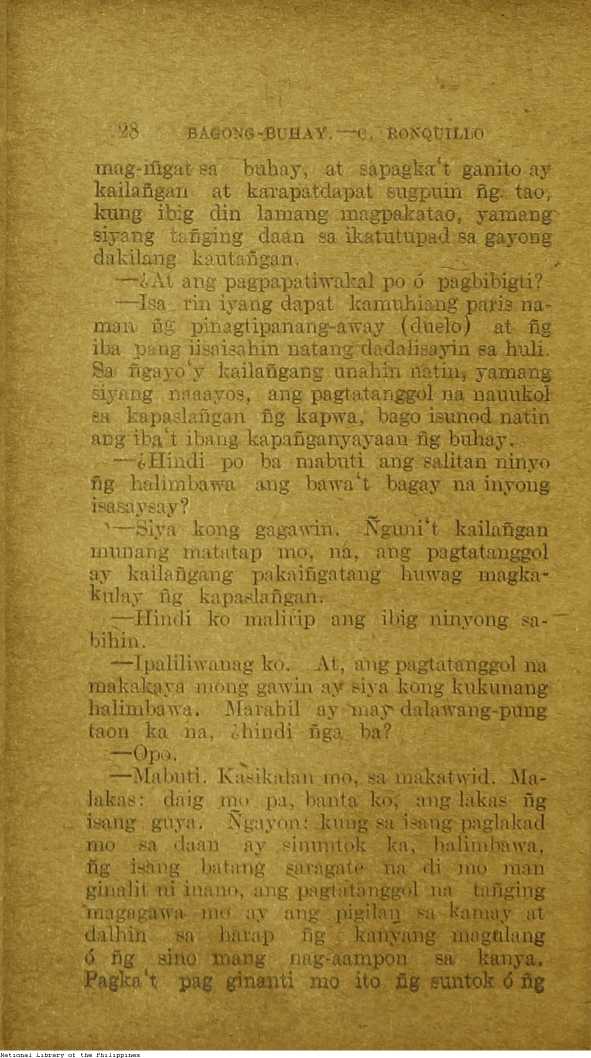 28 BAGONG-BUHAY.—C. RONQUILLO
mag-iñgat sa buhay, at sapagka‘t ganito ay
kailañgan at karapatdapat sugpuin ñg. tao,
kung ibig din lamang magpakatao, yamang
siyang tañging daan sa ikatutupad sa gayong
dakilang kautañgan.
—¿At ang pagpapatiwakal po ó pagbibigti?
—Isa rin iyang dapat kamuhiang paris na-
man ñg pinagtipanang-away (duelo) at ñg
iba pang iisaisahin natang dadalisayin sa huli.
Sa ñgayo‘y kailañgang unahin natin, yamang
siyang naaayos, ang pagtatanggol na nauukol
sa kapaslañgan ñg kapwa, bago isunod natin
ang iba‘t ibang kapañganyayaan ñg buhay.
—¿Hindi po ba mabuti ang salitan ninyo
ñg halimbawa ang bawa‘t bagay na inyong
isasaysay?
—Siya kong gagawin. Ñguni‘t kailañgan
munang matatap mo, na, ang pagtatanggol
ay kailañgang pakaiñgatang huwag magka-
kulay ñg kapaslañgan.
—Hindi ko malirip ang ibig ninyong sa-
bihin.
—Ipaliliwanag ko. At, ang pagtatanggol na
makakaya mong gawin ay siya kong kukunang
halimbawa. Marahil ay may dalawang-pung
taon ka na, ¿hindi ñga ba?
—Opo.
—Mabuti. Kasikalan mo, sa makatwid. Ma-
lakas: daig mo pa, banta ko, ang lakas ñg
isang guya. Ñgayon: kung sa isang paglakad
mo sa daan ay sinuntok ka, halimbawa,
ñg isang batang saragate na di mo man
ginalit ni inano, ang pagtatanggol na tañging
magagawa mo ay ang pigilan sa kamay at
dalhin sa harap ñg kanyang magulang
ó ñg sino mang nag-aampon sa kanya.
Pagka‘t pag ginanti mo ito ñg suntok ó ñg
National Library of the Philippines